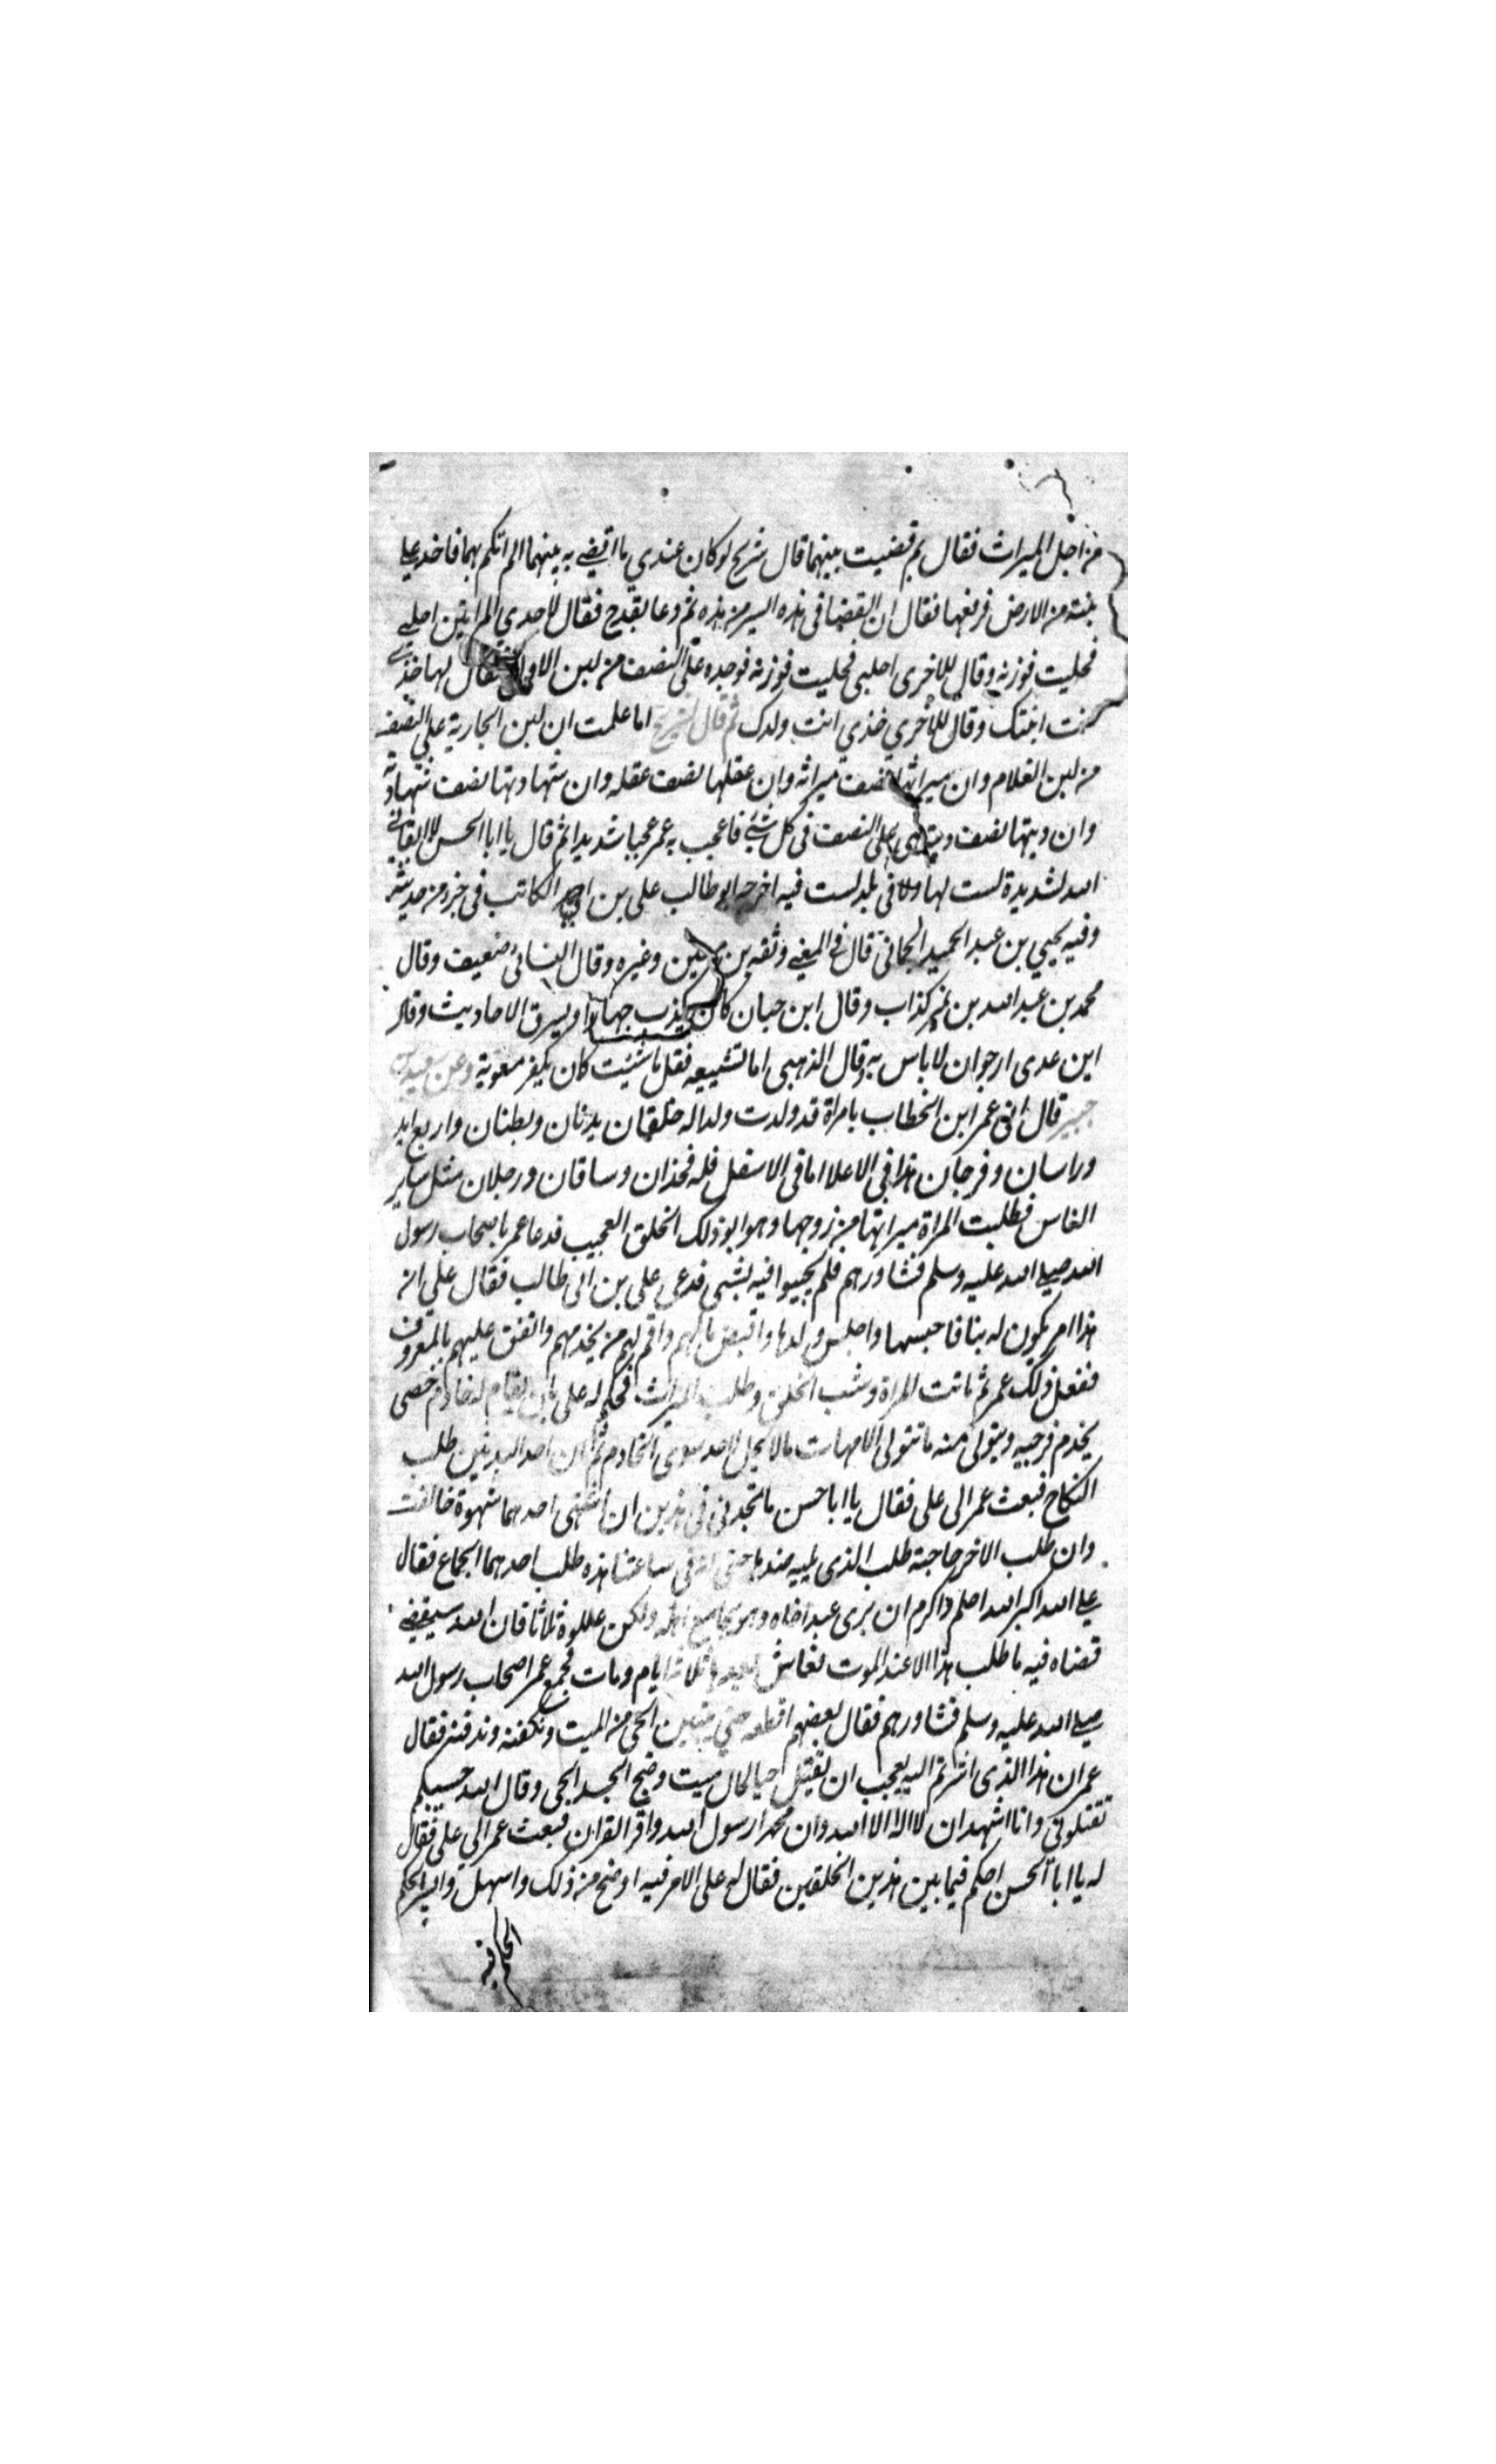 من اجل الميراث فقال بم قضيت بينهما قال شريح لو كان عندي ما اقضي به بينهما لم اتكم بهما فاخذ علي
تبنة من الارض فرفعها فقال ان القضا في هذه ايسر من هذه ثم دعا بقدح فقال لاحدي المراتين احلبي
فحلبت فوزنه وقال للاخرى احلبي فحلبت فوزنه فوجده على النصف من لبن الاولى فقال لها خذي
انت ابنتك وقال للاخري خذي انت ولدك ثم قال لشريح اما علمت ان لبن الجارية علي النصف
من لبن الغلام وان ميراثها نصف ميراثه وان عقلها نصف عقله وان شهادتها نصف شهادته
وان ديتها نصف ديته هي على النصف في كل شئ فاعجب به عمر عجبا شديدا ثم قال يا ابا الحسن لا ابقاني
الله لشديدة لست لها ولا في بلد لست فيه اخرجه ابو طالب علي بن احمد الكاتب في جزء من حديثه
وفيه يحيي بن عبد الحميد الحماني قال في المغني وثقه بن معين وغيره وقال النسائي ضعيف وقال
محمد بن عبد الله بن نمير كذاب وقال ابن حبان كان يكذب جهارا ويسرق الاحاديث وقال
ابن عدى ارجو ان لا باس به وقال الذهبي اما تشيعه فقل ما شئت كان يكفر معوية وعن سعيد بن
جبير قال اتى عمر ابن الخطاب بامراة قد ولدت ولدا له خلقتان بدنان وبطنان واربع ايد
وراسان وفرجان هذا في الاعلا اما في الاسفل فله فخذان وساقان ورجلان مثل ساير
الناس فطلبت المراة ميراثها من زوجها وهو ابو ذلك الخلق العجيب فدعا عمر باصحاب رسول
الله صلي الله عليه وسلم فشاورهم فلم يجيبوا فيه بشي فدعى على بن ابى طالب فقال على ان
هذا امر يكون له بنا فاحبسها واحبس ولدها واقبض مالهم واقم لهم من يخدمهم وانفق عليهم بالمعروف
ففعل ذلك عمر ثم ماتت المراة وشب الخلق وطلب الميراث فحكم له على بان يقام له خادم خصى
يخدم فرجيه ويتولى منه ما تتولى الامهات مالا يحل لاحد سوى الخادم ثم ان احد البدنين طلب
النكاح فبعث عمر الى على فقال يا ابا حسن ما تجد في هذين ان اشتهى احدهما شهوة خالفت
وان طلب الاخر حاجة طلب الذى يليه ضدها حتى انه في ساعتنا هذه طلب احدهما الجماع فقال
علي الله اكبر الله احلم واكرم ان يرى عبد اخاه وهو يجامع اهله ولكن عللوه ثلاثا فان الله سيقضي
قضاه فيه ما طلب هذا الا عند الموت فعاش بعدها ثلاثة ايام ومات فجمع عمر اصحاب رسول الله
صلي الله عليه وسلم فشاورهم فقال بعضهم اقطعه حتى يتبين الحي من الميت وتكفنه وتدفنه فقال
عمر ان هذا الذى اشرتم اليه يعجب ان نقتل حيا لحال ميت وضج الجسد الحي وقال الله حسبكم
تقتلونى وانا اشهد ان لا اله الا الله وان محمدا رسول الله واقرا القران فبعث عمر الي علي فقال
له يا ابا الحسن احكم فيما بين هذين الخلقين فقال له على الامر فيه اوضح من ذلك واسهل وايسر الحكم
الحكم فيه